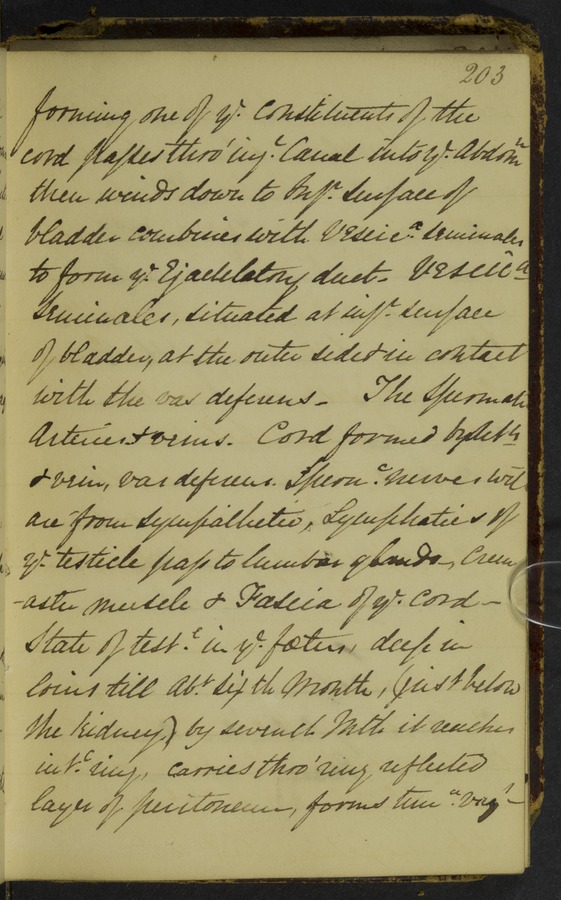 203
forming one of yr. constituents of the
cord passes thro' ingl. Canal into yr. Abdomn
then winds down to Infr. Surface of
bladder combines with Vesicae. Seminales
to form yr. Ejaculatory duct - Vesicae
Seminales, situated at infr. surface
of bladder, at the outer side & in contact
with the vas deferens - The Spermatic
Arteries & veins. Cord formed by
& vein, vas deferens. Spermc. nerves
are from Sympathetic, Lymphatics of
yr. testicle pass to lumbar glands, Crem
-aster muscle & Fascia of yr. Cord -
State of test. in yr. foetus, deep in
loins till abt. sixth Month, (just below
the kidney) by seventh Mth it reaches
intl. ring, carries thro' ring reflected
layer of peritoneum, forms tunca. Vagl. -